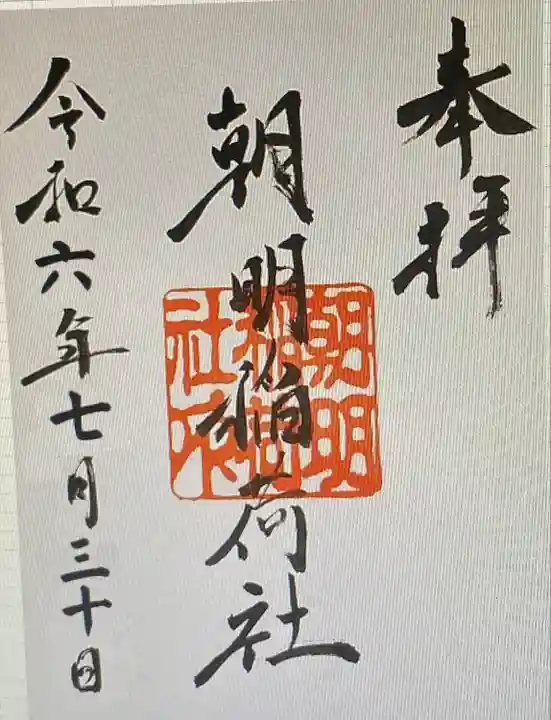 奉拝
朝明稲荷社
朝明
稲荷
社印
令和六年七月三十日